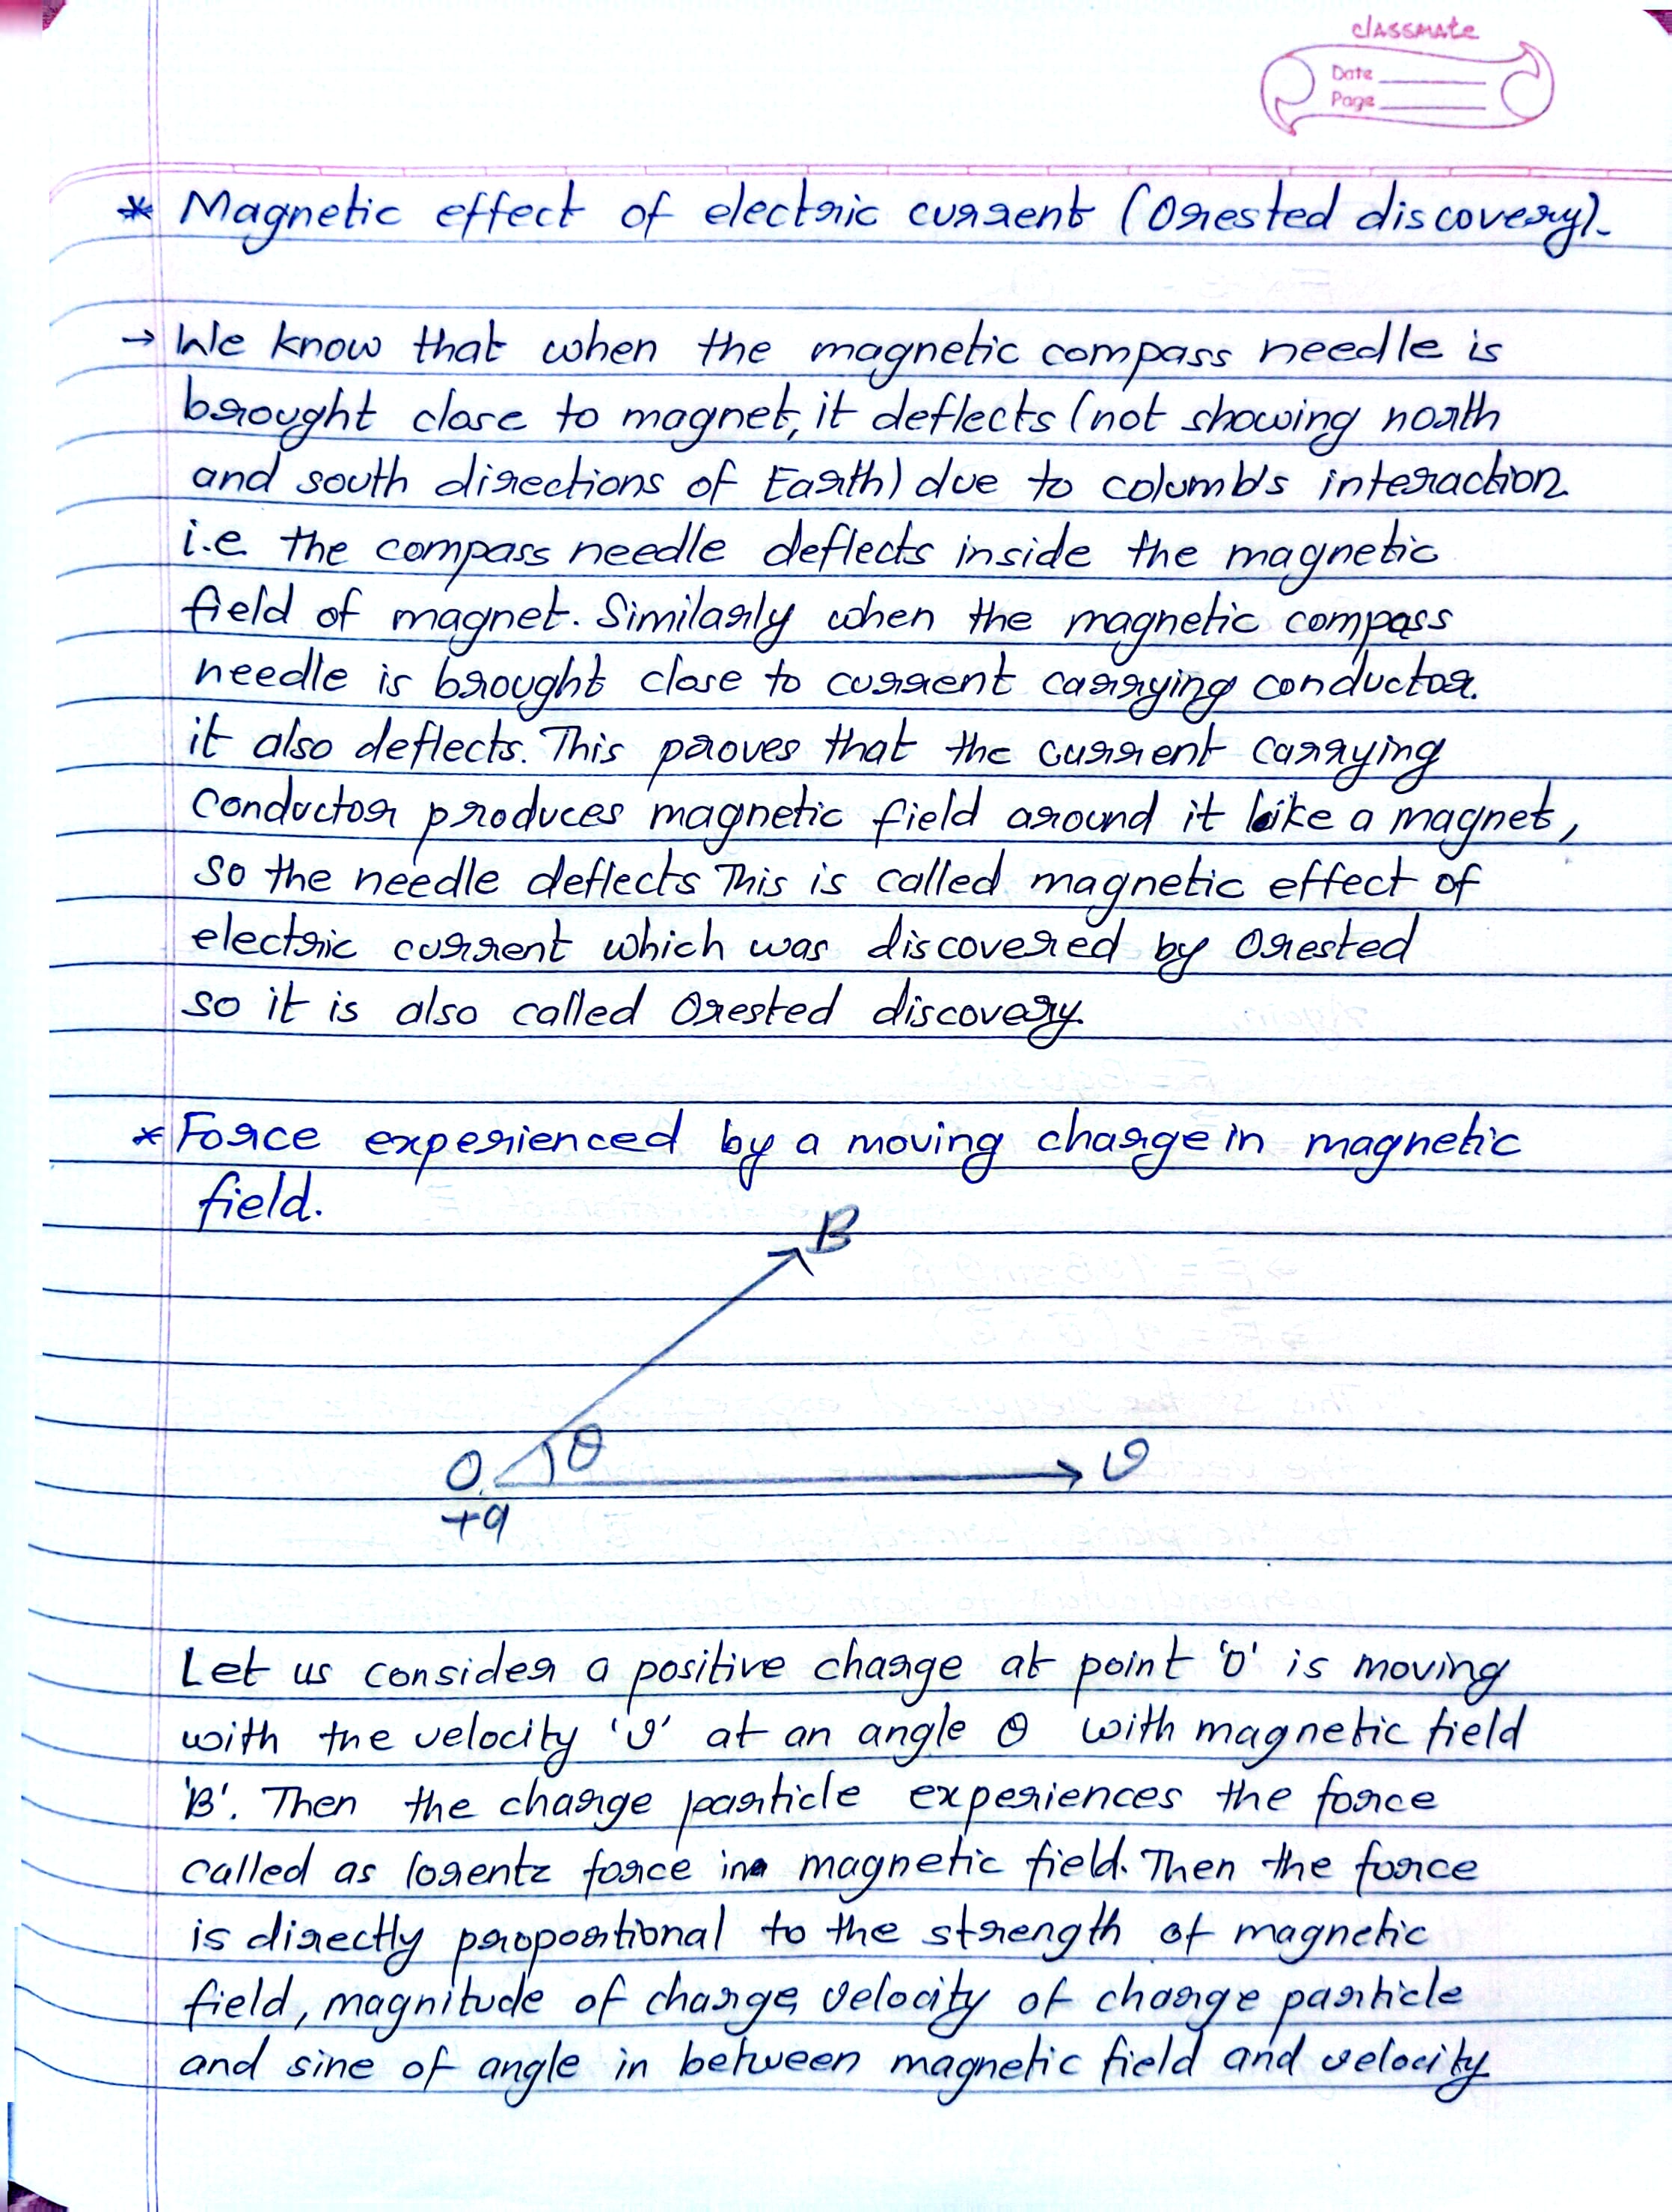 classmate
Date
Page
* Magnetic effect of electric current (Orested discovery).
→ We know that when the magnetic compass needle is
brought close to magnet, it deflects (not showing north
and south directions of Earth) due to columb's interaction.
i.e. the compass needle deflects inside the magnetic
field of magnet. Similarly when the magnetic compass
needle is brought close to current carrying conductor.
it also deflects. This proves that the current carrying
conductor produces magnetic field around it like a magnet,
so the needle deflects This is called magnetic effect of
electric current which was discovered by Orested
so it is also called Orested discovery.
* Force experienced by a moving charge in magnetic
field.
B
θ
O
v
+q
Let us consider a positive charge at point 'O' is moving
with the velocity 'v' at an angle θ with magnetic field
'B'. Then the charge particle experiences the force
called as lorentz force in magnetic field. Then the force
is directly propotional to the strength of magnetic
field, magnitude of charge, velocity of charge particle
and sine of angle in between magnetic field and velocity